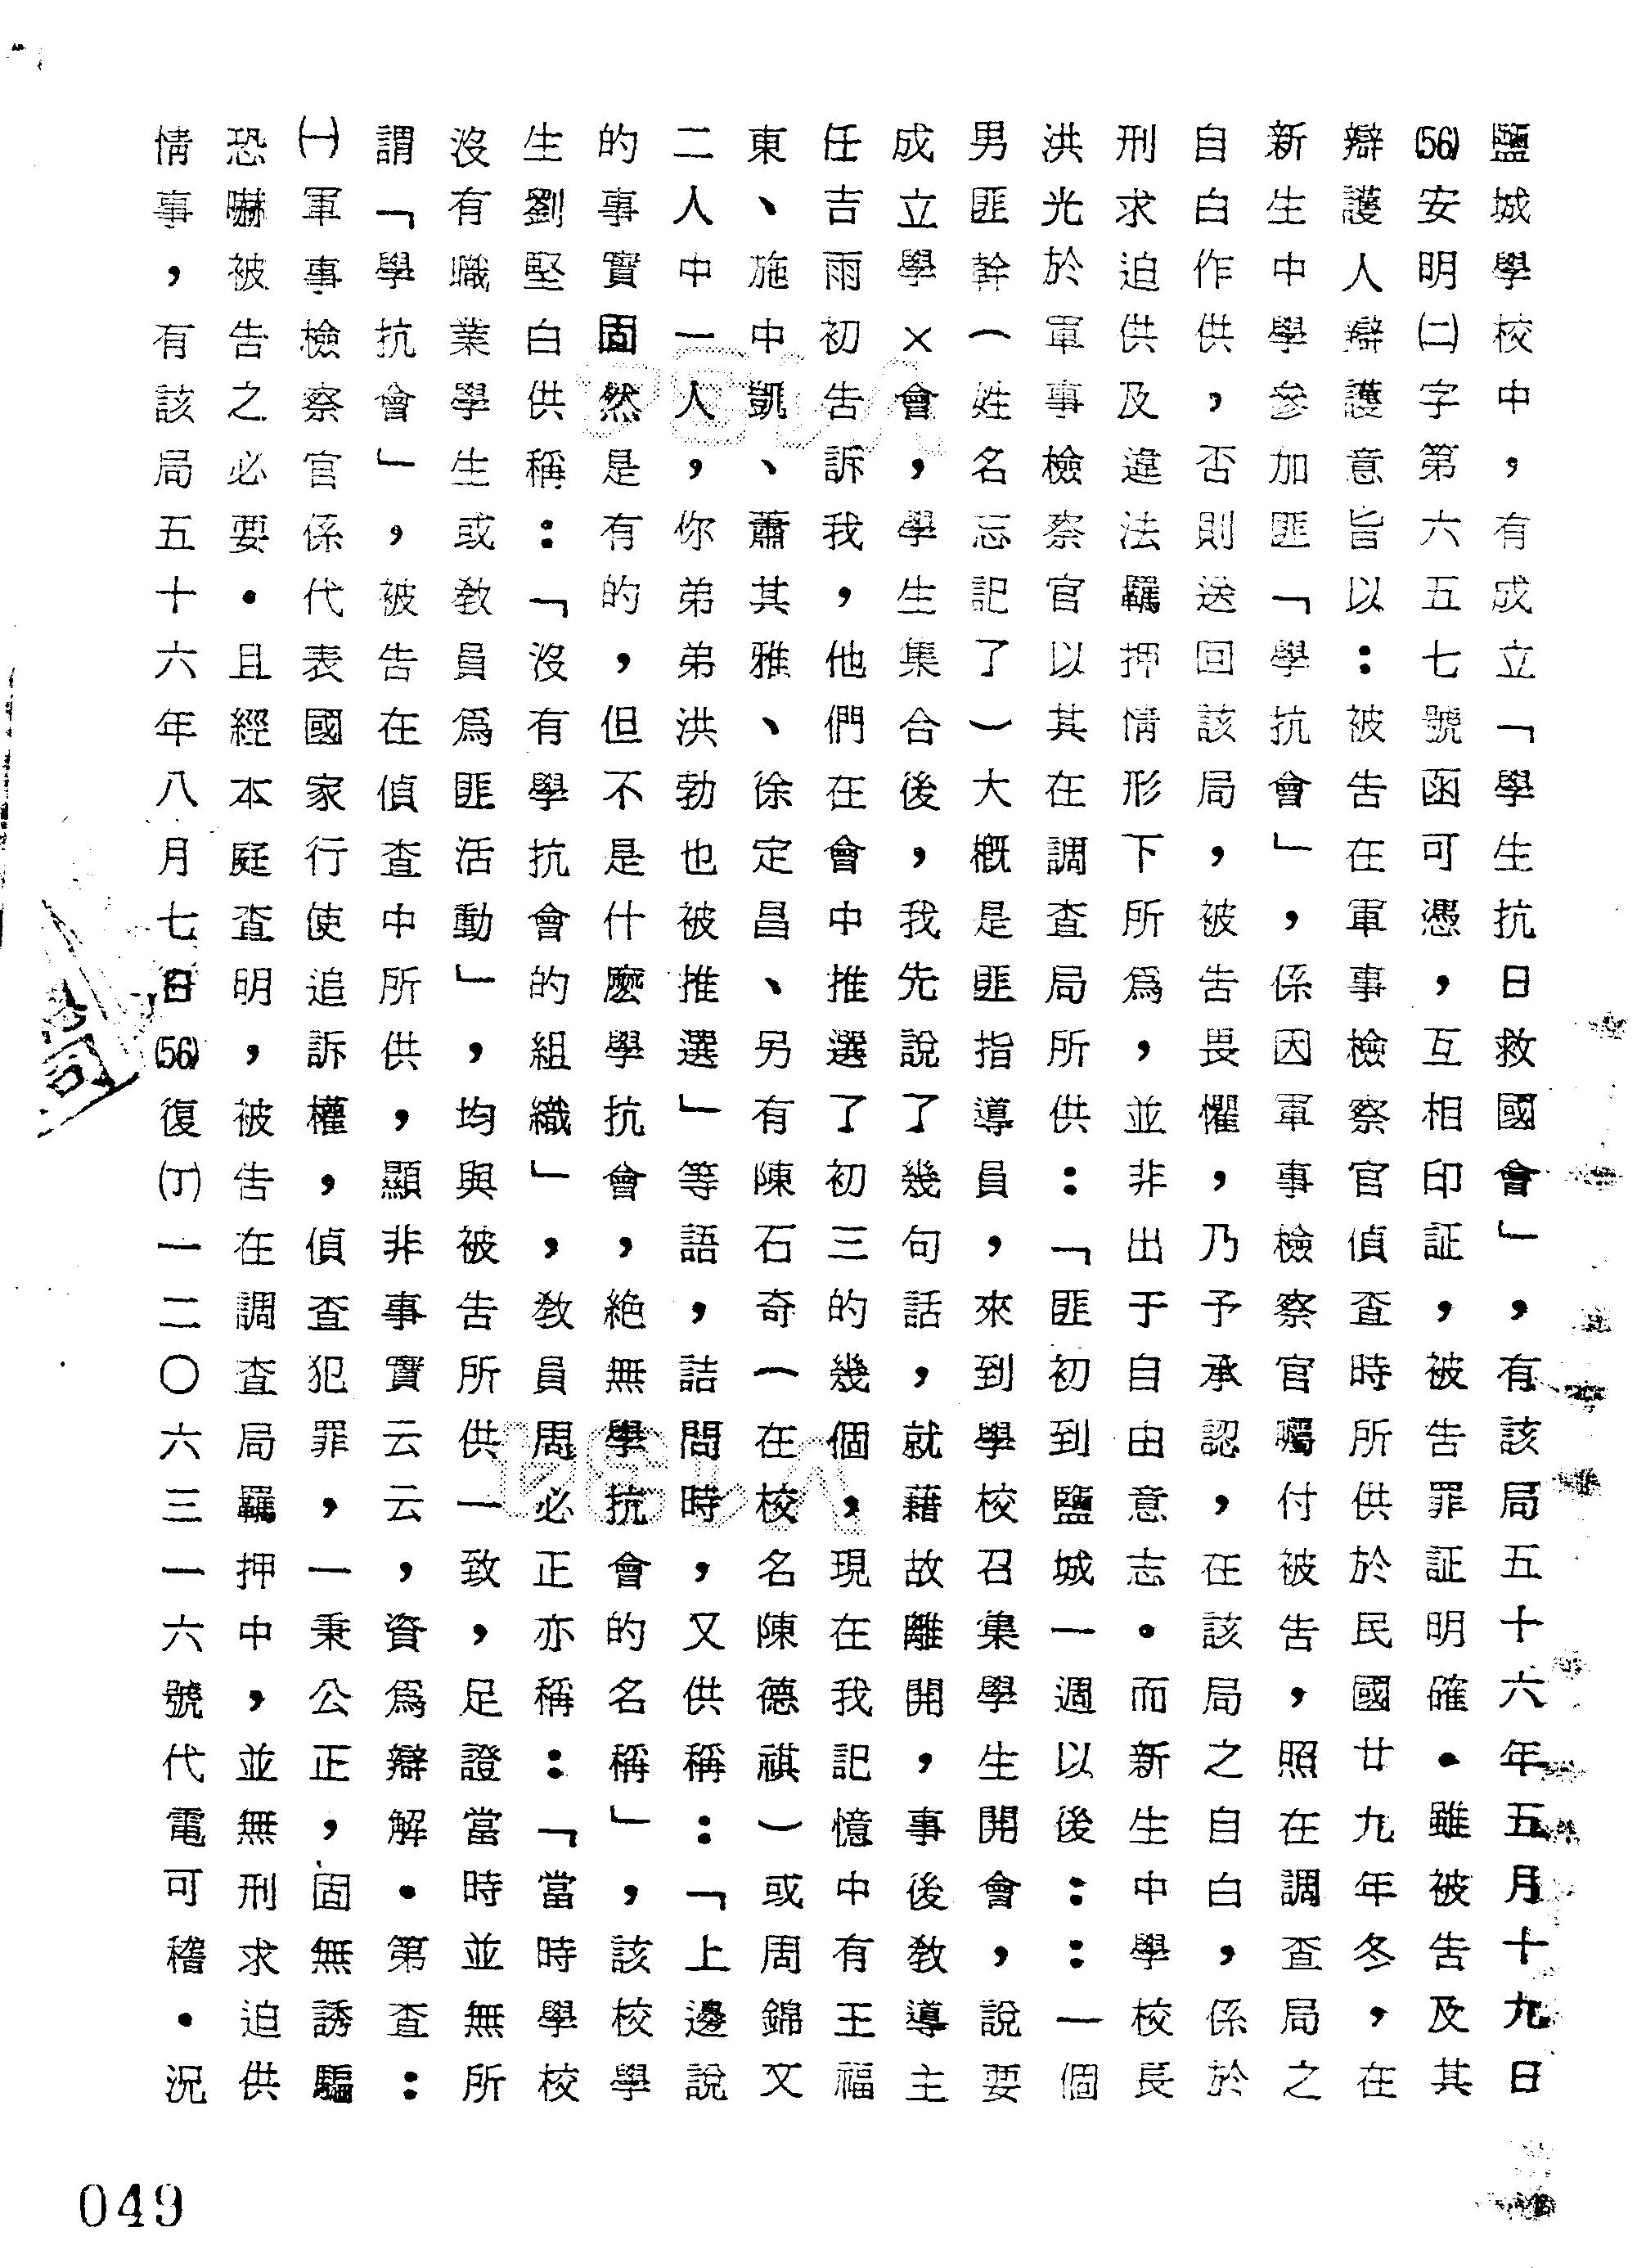 鹽城學校中，有成立「學生抗日救國會」，有該局五十六年五月十九日
(56)安明(二)字第六五七號函可憑，互相印証，被告罪証明確。雖被告及其
辯護人辯護意旨以：被告在軍事檢察官偵查時所供於民國廿九年冬，在
新生中學參加匪「學抗會」，係因軍事檢察官囑付被告，照在調查局之
自白作供，否則送回該局，被告畏懼，乃予承認，在該局之自白，係於
刑求迫供及違法羈押情形下所為，並非出于自由意志。而新生中學校長
洪光於軍事檢察官以其在調查局所供：「匪初到鹽城一週以後：：一個
男匪幹（姓名忘記了）大概是匪指導員，來到學校召集學生開會，說要
成立學×會，學生集合後，我先說了幾句話，就藉故離開，事後教導主
任吉雨初告訴我，他們在會中推選了初三的幾個，現在我記憶中有王福
東、施中凱、蕭其雅、徐定昌、另有陳石奇（在校名陳德祺）或周錦文
二人中一人，你弟弟洪勃也被推選」等語，詰問時，又供稱：「上邊說
的事實固然是有的，但不是什麼學抗會，絕無學抗會的名稱」，該校學
生劉堅白供稱：「沒有學抗會的組織」，教員周必正亦稱：「當時學校
沒有職業學生或教員為匪活動」，均與被告所供一致，足證當時並無所
謂「學抗會」，被告在偵查中所供，顯非事實云云，資為辯解。第查：
(一)軍事檢察官係代表國家行使追訴權，偵查犯罪，一秉公正，固無誘騙
恐嚇被告之必要。且經本庭查明，被告在調查局羈押中，並無刑求迫供
情事，有該局五十六年八月七日(56)復(丁)一二〇六三一六號代電可稽。況
049